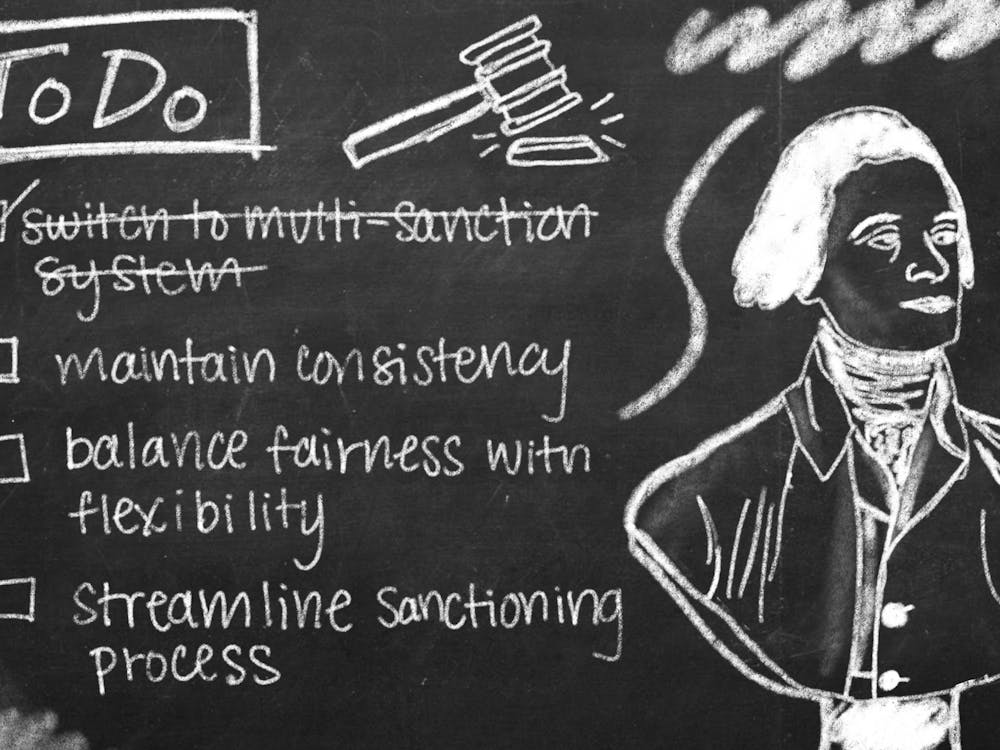 To Do
switch to multi-sanction
system
maintain consistency
balance fairness with
flexibility
streamline sanctioning
process